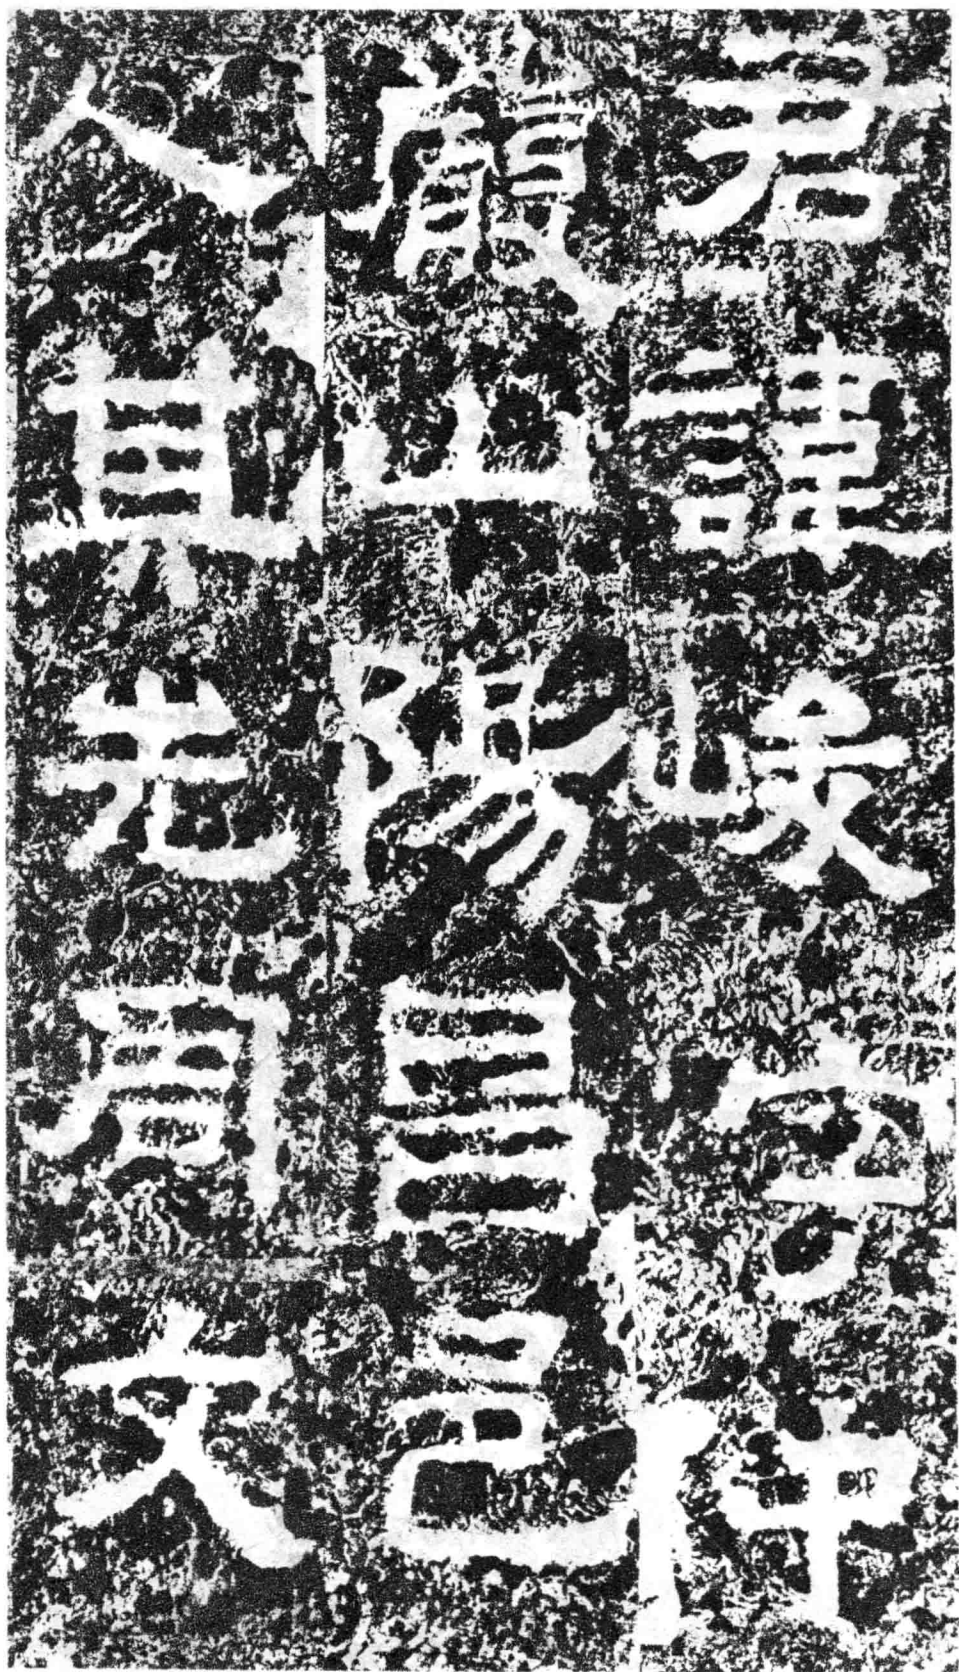 君諱峻字仲
嚴山陽昌邑
人其先周文